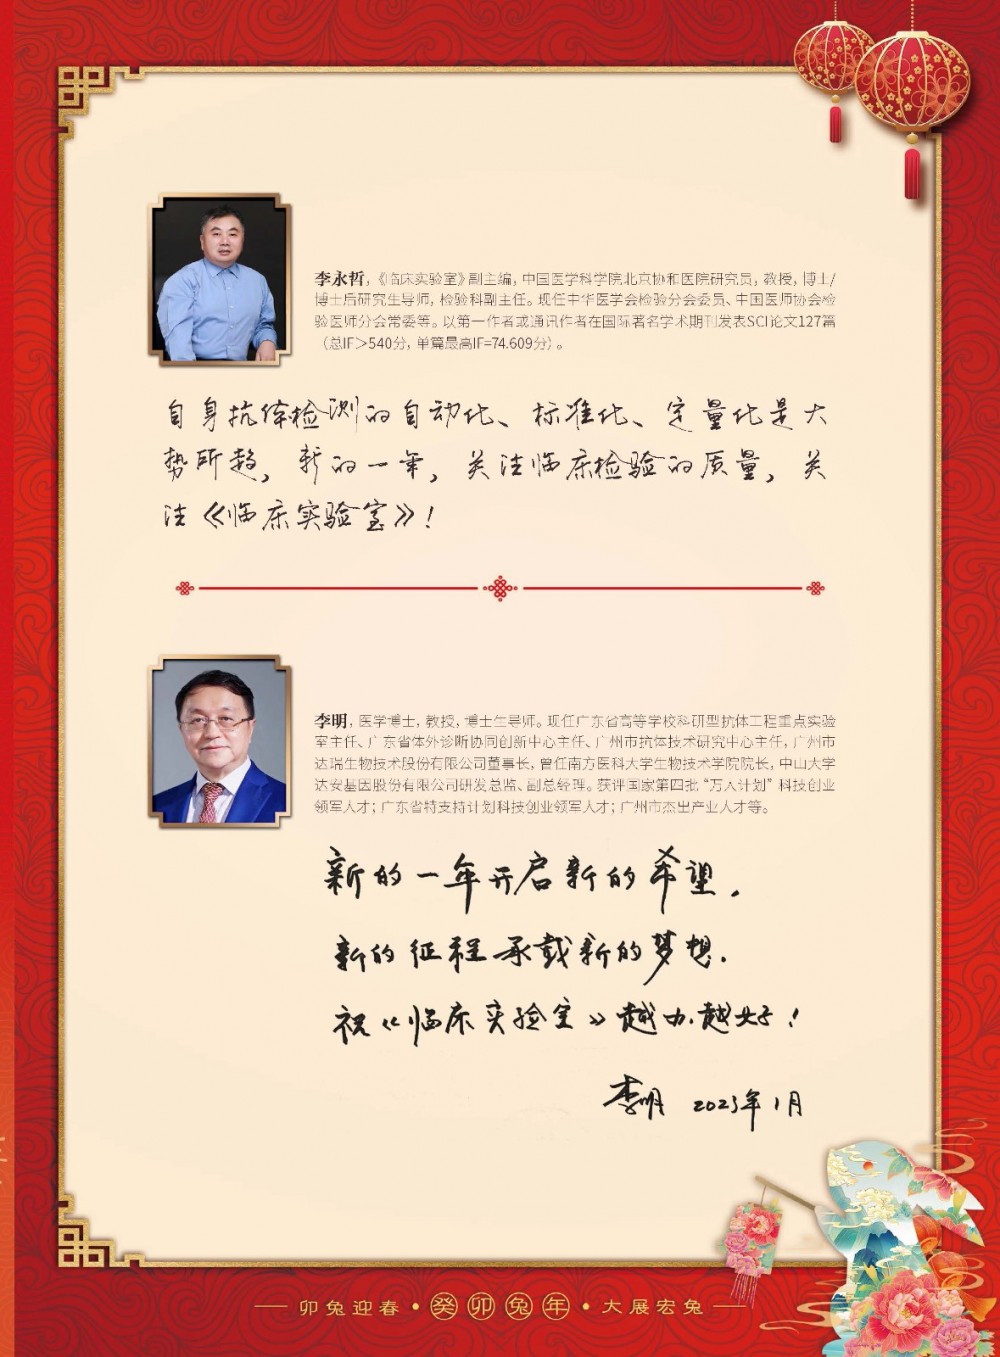 李永哲，《临床实验室》副主编，中国医学科学院北京协和医院研究员，教授，博士/
博士后研究生导师，检验科副主任。现任中华医学会检验分会委员、中国医师协会检
验医师分会常委等。以第一作者或通讯作者在国际著名学术期刊发表SCI论文127篇
（总IF＞540分，单篇最高IF=74.609分）。
自身抗体检测的自动化、标准化、定量化是大
势所趋，新的一年，关注临床检验的质量，关
注《临床实验室》！
李明，医学博士，教授，博士生导师。现任广东省高等学校科研型抗体工程重点实验
室主任、广东省体外诊断协同创新中心主任、广州市抗体技术研究中心主任，广州市
达瑞生物技术股份有限公司董事长，曾任南方医科大学生物技术学院院长，中山大学
达安基因股份有限公司研发总监、副总经理。获评国家第四批“万人计划”科技创业
领军人才；广东省特支持计划科技创业领军人才；广州市杰出产业人才等。
新的一年开启新的希望，
新的征程承载新的梦想．
祝《临床实验室》越办越好！
李明 2023年1月
卯兔迎春·癸卯兔年·大展宏兔